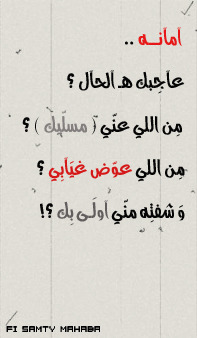 أمانـــه ..
عاجبك هـ الحال ؟
مِن اللي عنّي ( مسلّيك ) ؟
مِن اللي عوّض غيَابِي ؟
وَ شفتِه منّي أولَى بِك ؟!
FI SAMTV MAHABA